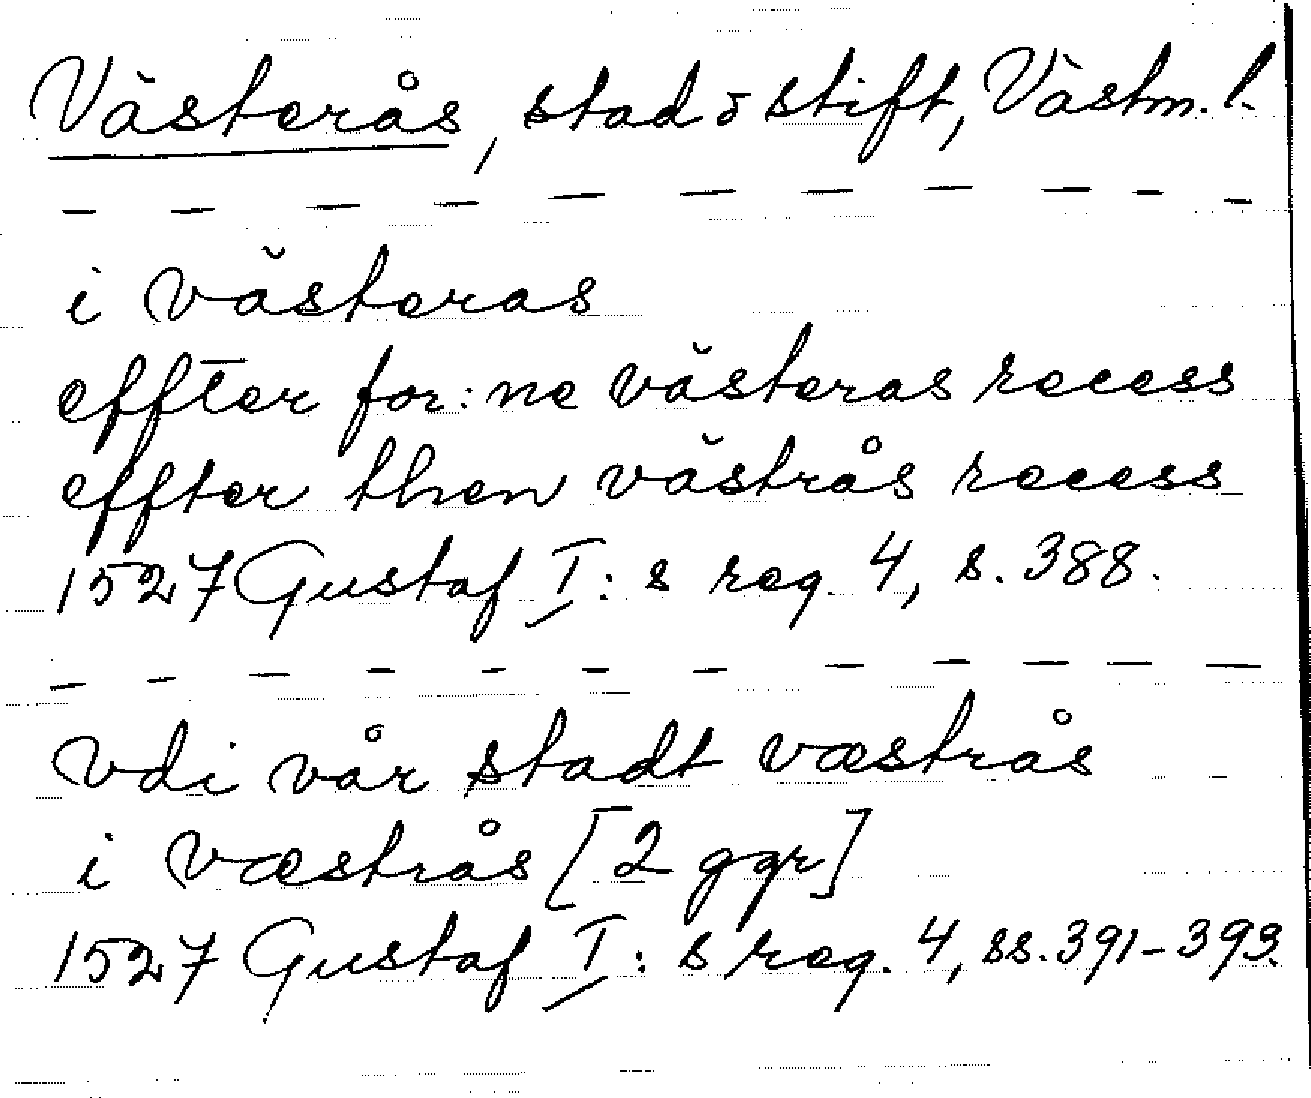 Västerås, stad o stift, Västm. l.
i västeras
effter for: ne västeras recess
effter then västrås recess
1527 Gustaf I: s reg. 4, s. 388.
vdi vår stadt væstrås
i væstrås [2 ggr]
1527 Gustaf I: s reg. 4, ss. 391-393.